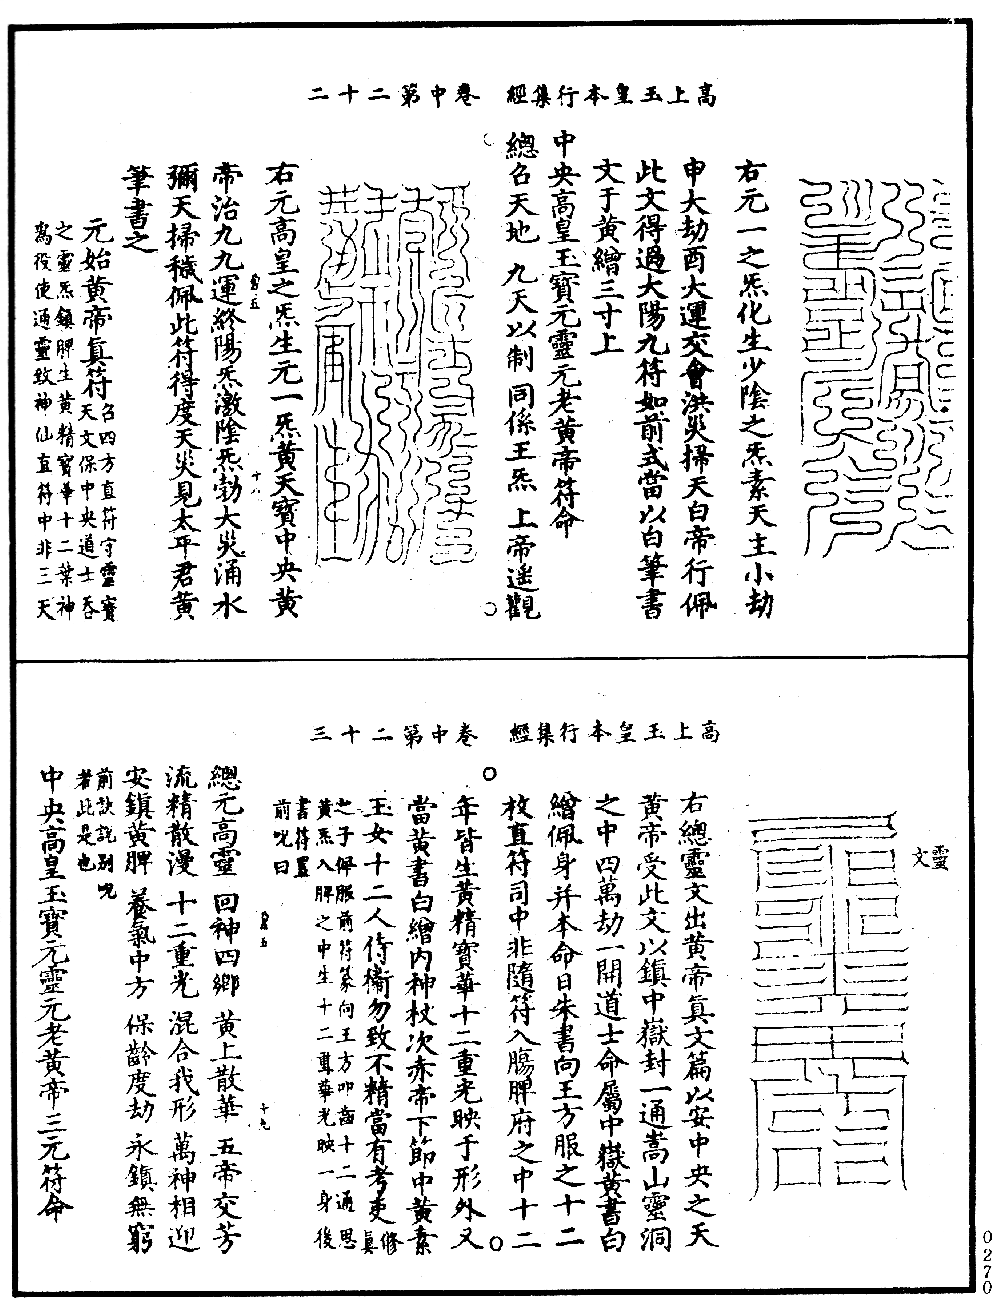 高上玉皇本行集經　卷中第二十二
右元一之炁化生少陰之炁素天主小劫
申大劫酉大運交會洪災掃天白帝行佩
此文得過大陽九符如前式當以白筆書
文于黃繒三寸上
中央高皇玉寶元靈元老黃帝符命
總召天地　九天以制　同係王炁　上帝遥觀
右元高皇之炁生元一炁黃天寶中央黃
帝治九九運終陽炁激陰炁勃大災涌水
彌天掃穢佩此符得度天災見太平君黃
筆書之
元始黃帝眞符
召四方直符守靈寶
天文保中央道士吞
之靈炁鎮脾生黃精寶華十二葉神
爲役使通靈致神仙直符中非三天
高上玉皇本行集經　卷中第二十三
靈文
右總靈文出黃帝眞文篇以安中央之天
黃帝受此文以鎮中嶽封一通嵩山靈洞
之中四萬劫一開道士命屬中嶽黃書白
繒佩身并本命日朱書向王方服之十二
枚直符司中非隨符入腸脾府之中十二
年皆生黃精寶華十二重光映于形外又
當黃書白繒內神杖次赤帝下節中黃素
玉女十二人侍衛勿致不精當有考吏
修眞
之子佩服前符篆向王方叩齒十二通思
黃炁入脾之中生十二重華光映一身後
書符置
前呪曰
總元高靈　回神四鄉　黃上散華　五帝交芳
流精散漫　十二重光　混合我形　萬神相迎
安鎮黃脾　養氣中方　保齡度劫　永鎮無窮
前訣說別呪
者此是也
中央高皇玉寶元靈元老黃帝三元符命
0270